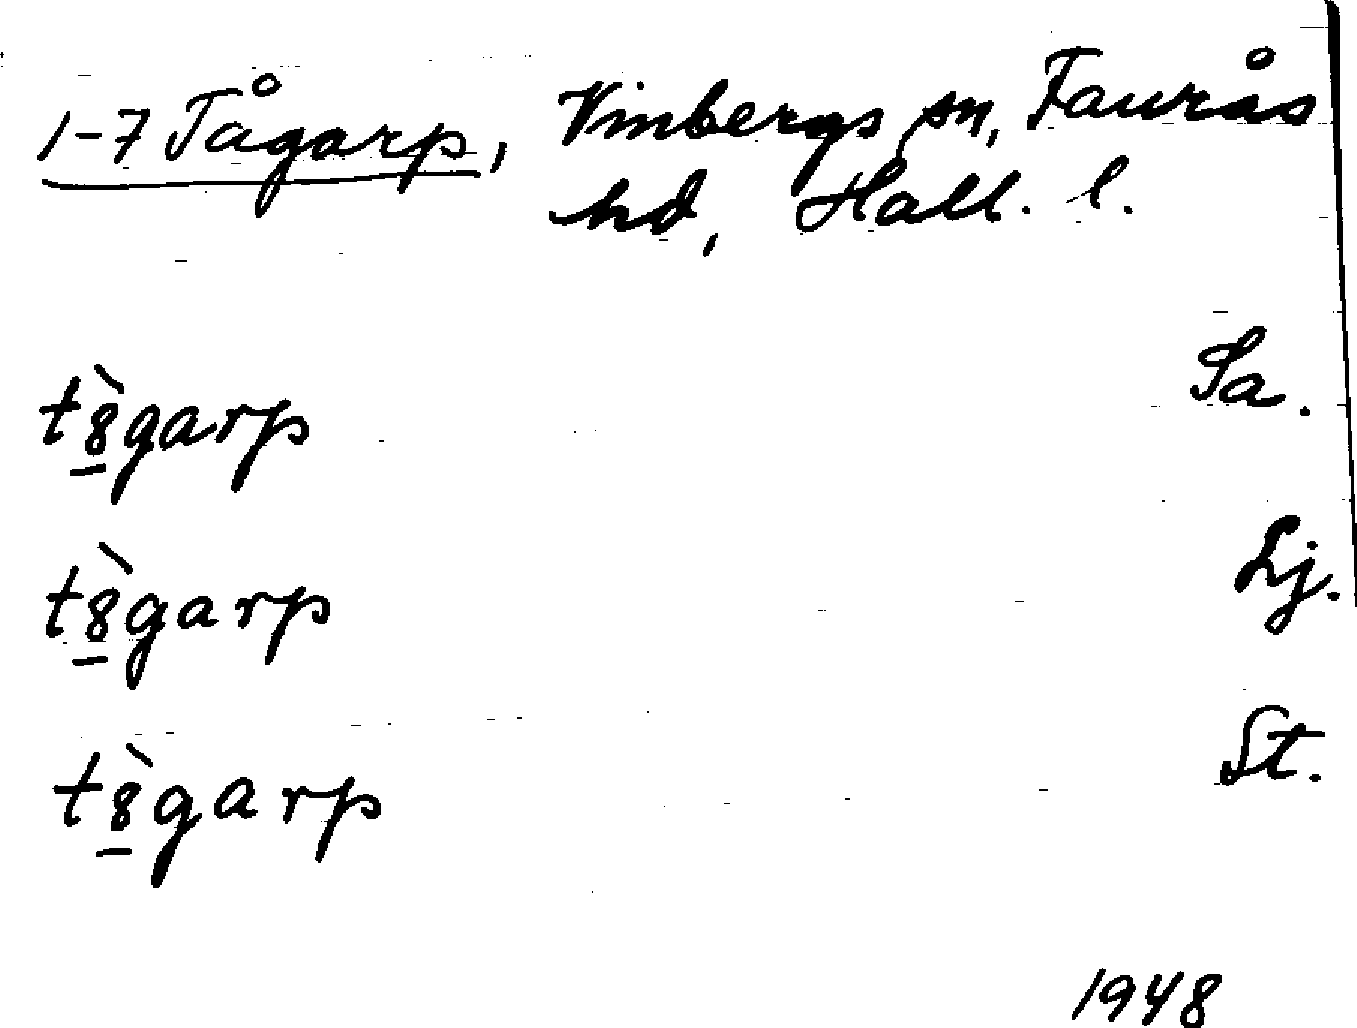 1-7 Tågarp, Vinbergs sn, Faurås
hd, Hall. l.
t8̲̀garp Sa.
t8̲̀garp Lj.
t8̲̀garp St.
1948